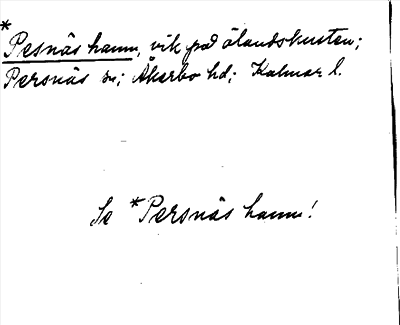 *
Pesnäs hamn, vik på ölandskusten;
Persnäs sn; Åkerbo hd; Kalmar l.
Se *Persnäs hamn!